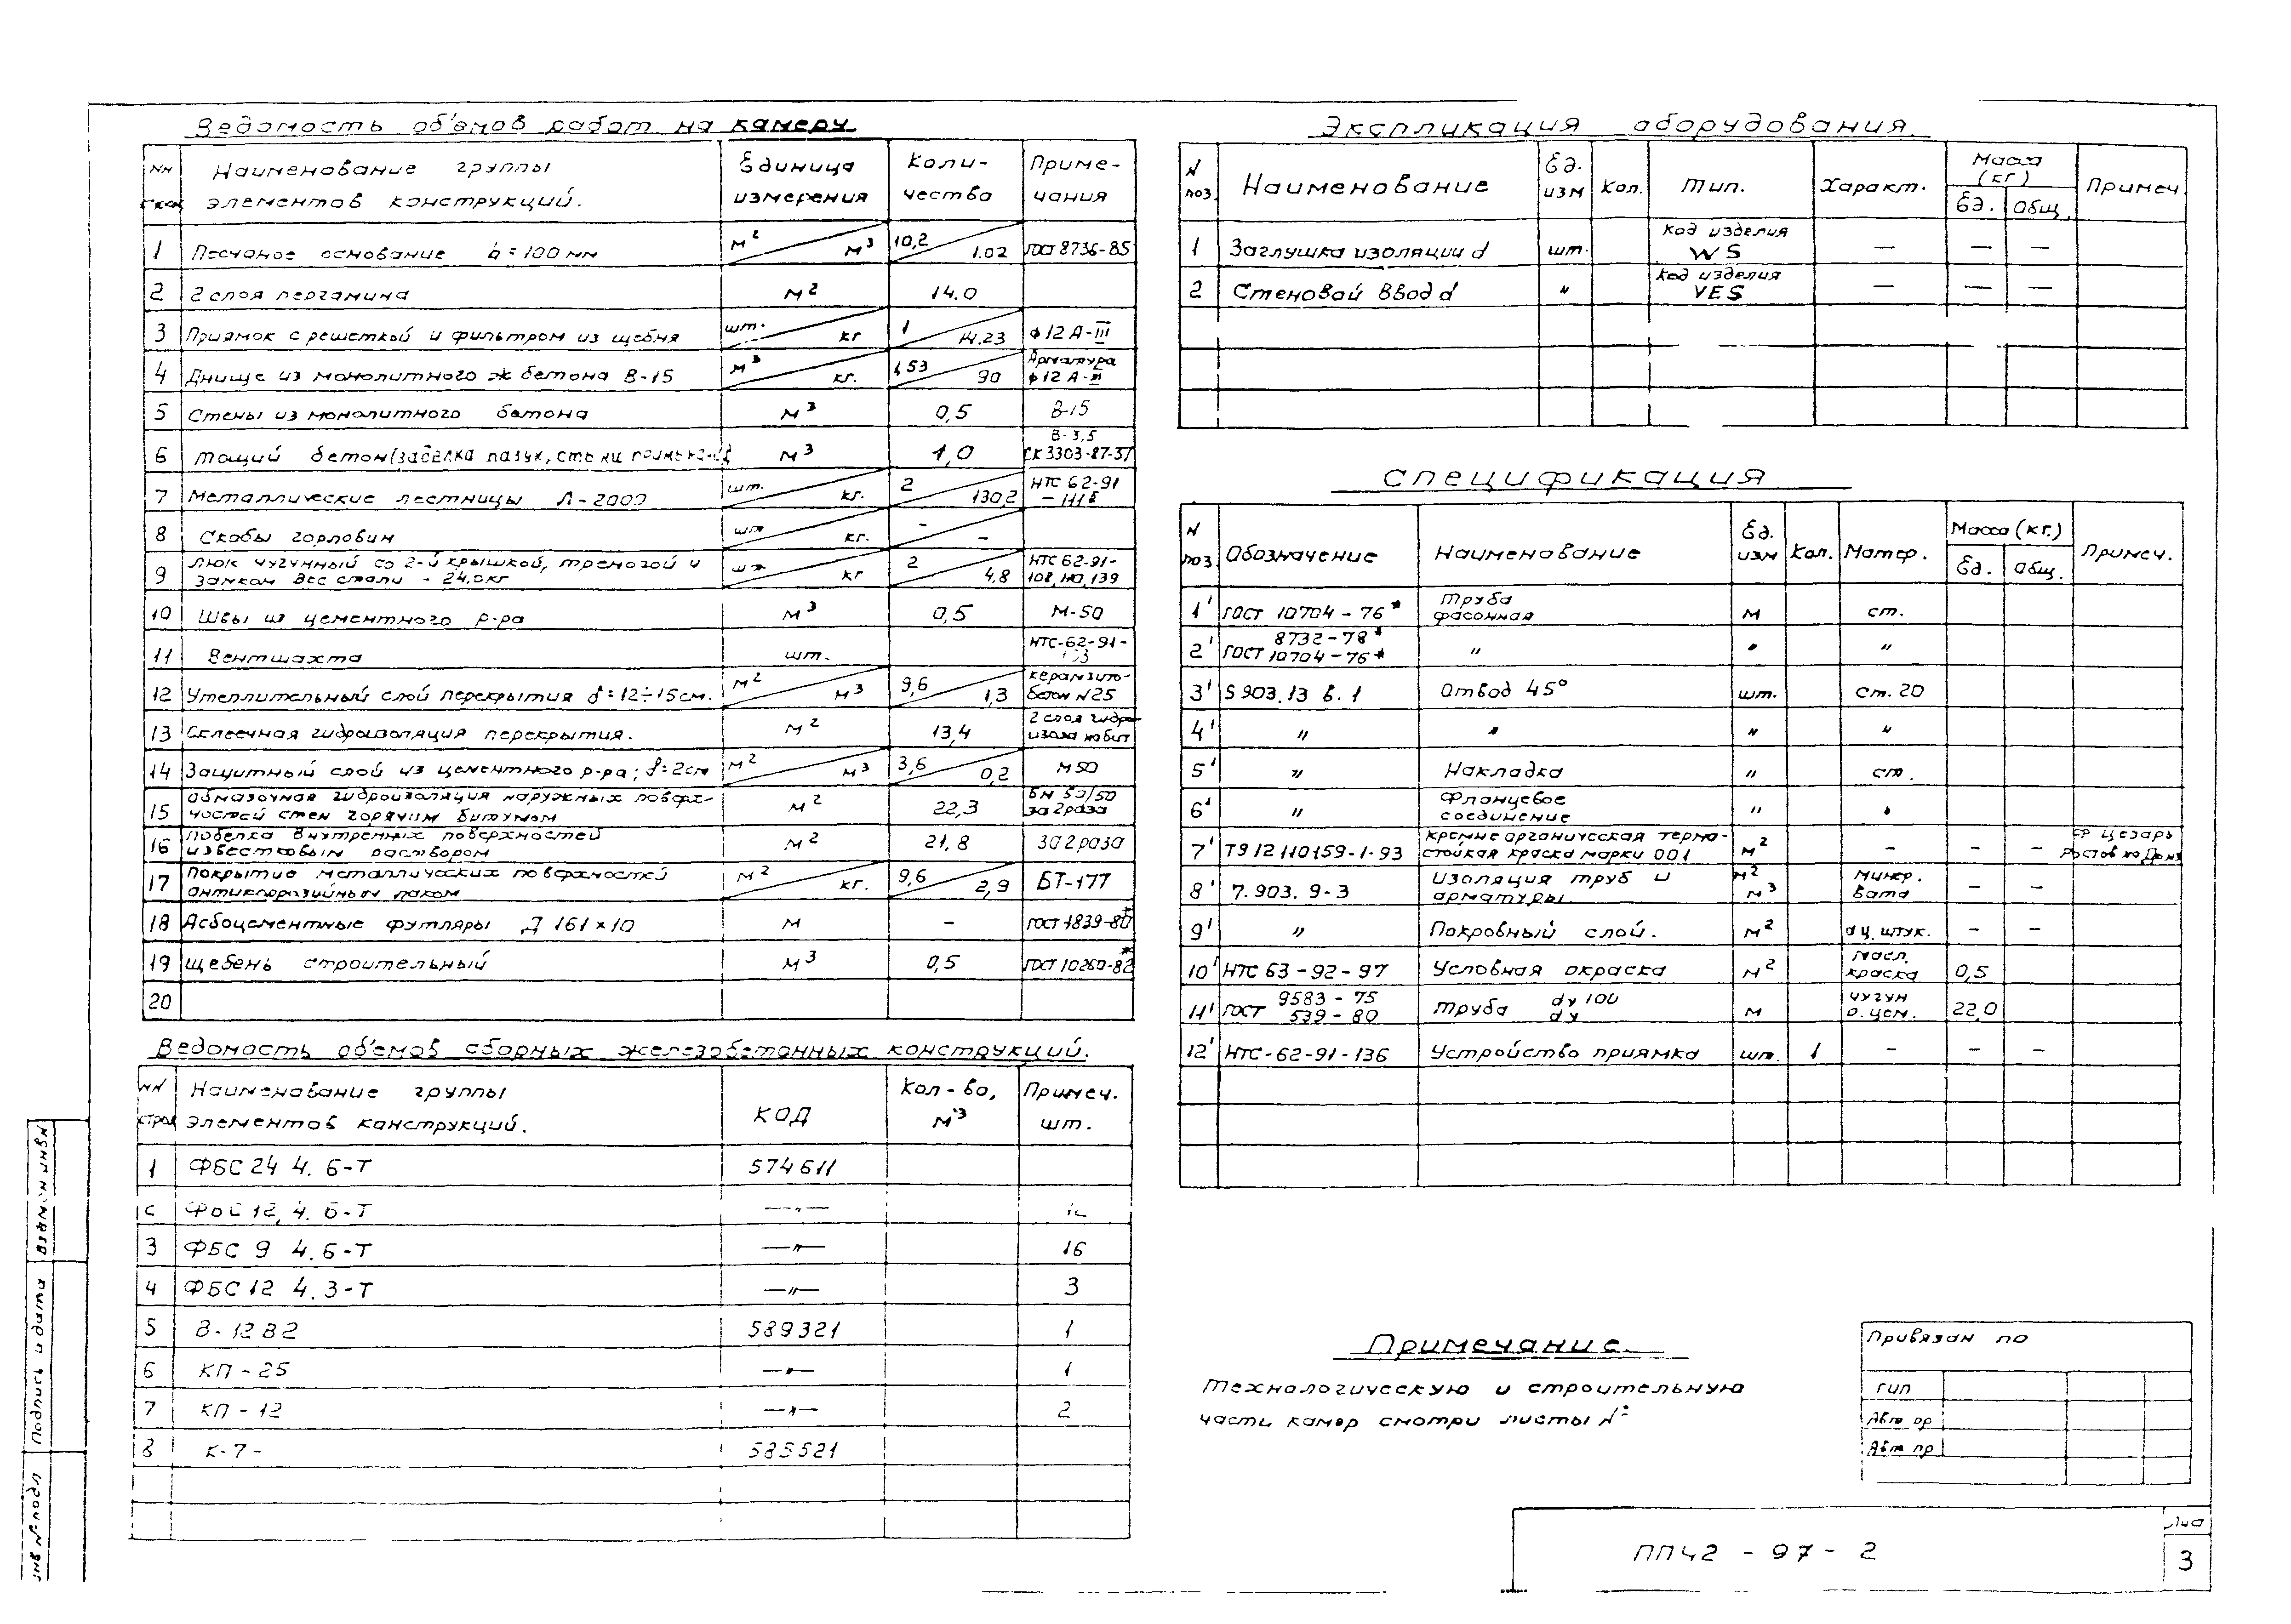 Ведомость об'емов работ на камеру
NN Наименование группы Единица Коли- Приме-
строк элементов конструкций. измерения чество чания
1 Песчаное основание h=100 мм м² м³ 10,2 1.02 ГОСТ 8736-85
2 2 слоя пергамина м² 14.0
3 Приямок с решеткой и фильтром из щебня шт. кг 1 14.23 ф12 А-III
4 Днище из монолитного ж бетона В-15 м³ кг. 1,53 90 Арматура ф12 А-III
5 Стены из монолитного бетона м³ 0,5 В-15
6 тощий бетон (заделка пазух, стыки м³ 1,0 В-3,5 СК 3303-87-37
7 Металлические лестницы Л-2000 шт. кг. 2 130,2 НТС 62-91
8 Скобы горловин шт кг. - -
9 Люк чугунный со 2-й крышкой, треногой и замком вес стали - 24,0кг шт кг 2 4,8 НТС 62-91- 108, 110, 139
10 Швы из цементного р-ра м³ 0,5 М-50
11 Вентшахта шт. НТС-62-91-
12 Утеплительный слой перекрытия δ=12÷15см. м² м³ 9,6 1,3 керамзито- бетон N25
13 Оклеечная гидроизоляция перекрытия. м² 13,4 2 слоя гидро-
14 Защитный слой из цементного р-ра; δ=2см м² м³ 3,6 0,2 М50
15 Обмазочная гидроизоляция наружных поверх- ностей стен горячим битумом м² 22,3 БН 50/50 за 2 раза
16 Побелка внутренних поверхностей известковым раствором м² 21,8 за 2 раза
17 Покрытие металлических поверхностей антикоррозийным лаком м² кг. 9,6 2,9 БТ-177
18 Асбоцементные футляры Д 161×10 м - ГОСТ 1839-80*
19 щебень строительный м³ 0,5 ГОСТ 10260-82*
20
Ведомость об'емов сборных железобетонных конструкций.
NN Наименование группы Кол-во, Примеч.
строк элементов конструкций. КОД м³ шт.
1 ФБС 24 4. 6-Т 574611
ФБС 12. 4. 6-Т —„—
3 ФБС 9 4. 6-Т —„— 16
4 ФБС 12 4. 3-Т —„— 3
5 В-12В2 589321 1
6 КП-25 —„— 1
7 КП-12 —„— 2
8 К-7- 585521
Экспликация оборудования
N поз. Наименование Ед. изм Кол. Тип. Характ. Масса (кг) Ед. Общ. Примеч
1 Заглушка изоляции d шт. Код изделия WS — — —
2 Стеновой ввод d „ Код изделия VES — — —
Спецификация
N поз. Обозначение Наименование Ед. изм Кол. Матер. Масса (кг.) Ед. Общ. Примеч.
1' ГОСТ 10704-76* Труба фасонная м ст.
2' ГОСТ 8732-78* 10704-76* „ „ „
3' S 903.13 в. 1 Отвод 45° шт. ст. 20
4' „ „ „ „
5' „ Накладка „ ст.
6' „ Фланцевое соединение „ „
7' Т912110159-1-93 Кремнеорганическая термо- стойкая краска марки 001 м² - - - Ростов на Дону
8' 7.903. 9-3 Изоляция труб и арматуры м² м³ минер. вата - -
9' „ Покровный слой. м² штук. - -
10' НТС 63-92-97 Условная окраска м² масл. краска 0,5
11' ГОСТ 9583-75 539-80 Труба dу 100 dу м чугун 22,0
12' НТС-62-91-136 Устройство приямка шт. 1 - - -
Примечание.
Технологическую и строительную
части камер смотри листы №
Привязан по
ГИП
ПП42-97-2
3
Взамен инв№
Подпись и дата
Инв № подл